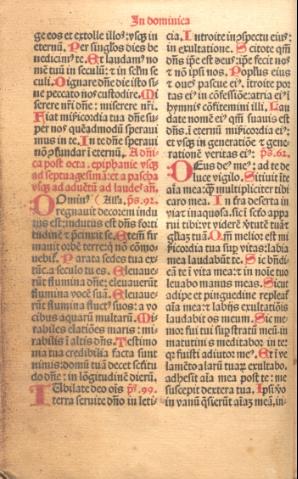 In dominica
ge eos et extolle illos: vsqȝ in
eternū. Per singlos dies be
nedicimꝰ te. Et laudamꝰ no
mē tuū in seculū: ⁊ in sclm se
culi. Dignare dn̄e die isto si-
ne peccato nos custodire. Mi
serere nr̄i dn̄e: miserere nr̄i.
Fiat misericordia tua dn̄e su-
per nos quēadmodū speraui
mus in te. In te dn̄e speraui
nō ꝯfundar ī eternū. A dn̄i-
ca post octa. epiphanie vsqȝ
ad septuagesimā: et a pascha
vsqȝ ad aduētū ad laudeˢ an̄.
Dominꝰ ps. 92.
regnauit decorem indu
tus est: indutus est dn̄s forti
tudinē ⁊ precinxit se. Etem̄ fir
mauit orbē terre: q̇ nō cōmo
uebit̄. Parata sedes tua ex-
tūc: a seculo tu es. Eleuaue-
rūt flumina dn̄e: eleuauerūt
flumina vocē suā. Eleuaue-
rūt flumina fluctꝰ suos: a vo
cibus aquarū multarū. Mi-
rabiles elatiōes maris: mi-
rabilis ī altis dn̄s. Testimo
nia tua credibilia facta sunt
nimis: domū tuā decet sctitu
do dn̄e: in lōgitudinē dierū.
Iubilate deo oīs ps. 99.
terra seruite dn̄o in leti-
cia. Introite in ꝯspectu eiꝰ:
in exultatione. Scitote qm̄
dn̄s ip̄e est deus: ip̄e fecit nos
⁊ nō ipsi nos. Popl̄us eiꝰ
⁊ oues pascue eiꝰ: introite por
tas eiꝰ in cōfessiōe: atria eiꝰ ī
hymnis cōfitemini illi. Lau
date nomē eiꝰ qm̄ suauis est
dn̄s: ī eternū misericordia eiꝰ:
et vsqȝ in generatiōe ⁊ gene-
rationē veritas eiꝰ. ps. 62.
Deus deꝰ meꝰ: ad te de
luce vigilo. Sitiuit ī te
aīa mea: q̄ꝫ multipliciter tibi
caro mea. In tra deserta in
via ⁊ inaquosa: sic ī scto appa
rui tibi: vt viderē v̄tutē tuā ⁊
gl̄iaꝫ tuā. Qm̄ melior est mi
sericordia tua sup vitas: labia
mea laudabūt te. Sic bn̄di-
cā te ī vita mea: ⁊ in noīe tuo
leuabo manus meas. Sicut
adipe et pinguedine repleat̄
aīa mea: ⁊ labijs exultatiōis
laudabit os meum. Sic me-
mor fui tui sup stratū meū: in
matutinis meditabor in te:
qꝛ fuisti adiutor meꝰ. Et ī ve
lamēto alarū tuaꝝ exultabo.
adhesit aīa mea post te: me
suscepit dextera tua. Ipsi vo
in vanū q̄sierūt aīaꝫ meā, in-